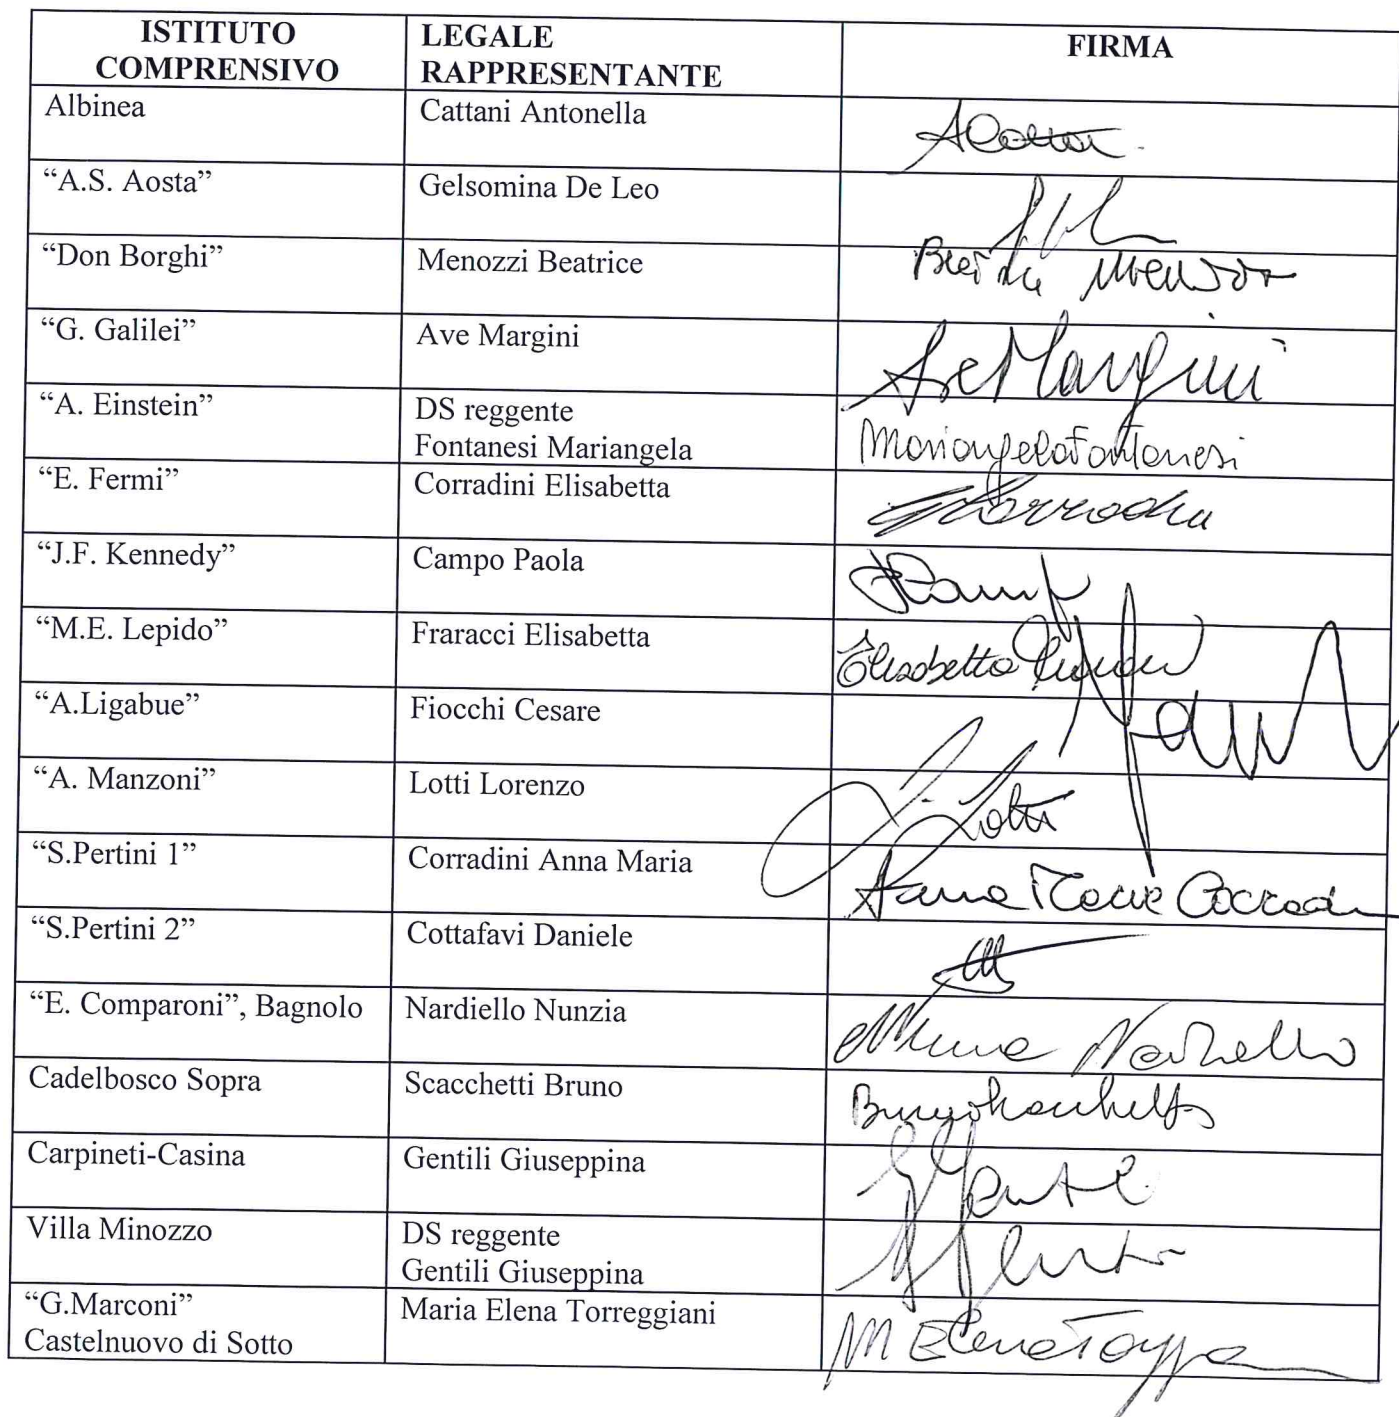 ISTITUTO COMPRENSIVO
LEGALE RAPPRESENTANTE
FIRMA
Albinea
Cattani Antonella
“A.S. Aosta”
Gelsomina De Leo
“Don Borghi”
Menozzi Beatrice
“G. Galilei”
Ave Margini
Ave Margini
“A. Einstein”
DS reggente
Fontanesi Mariangela
Mariangela Fontanesi
“E. Fermi”
Corradini Elisabetta
“J.F. Kennedy”
Campo Paola
“M.E. Lepido”
Fraracci Elisabetta
Elisabetta
“A.Ligabue”
Fiocchi Cesare
“A. Manzoni”
Lotti Lorenzo
Lotti
“S.Pertini 1”
Corradini Anna Maria
Anna Maria
“S.Pertini 2”
Cottafavi Daniele
“E. Comparoni”, Bagnolo
Nardiello Nunzia
Cadelbosco Sopra
Scacchetti Bruno
Carpineti-Casina
Gentili Giuseppina
Villa Minozzo
DS reggente
Gentili Giuseppina
“G.Marconi”
Castelnuovo di Sotto
Maria Elena Torreggiani
M Elena